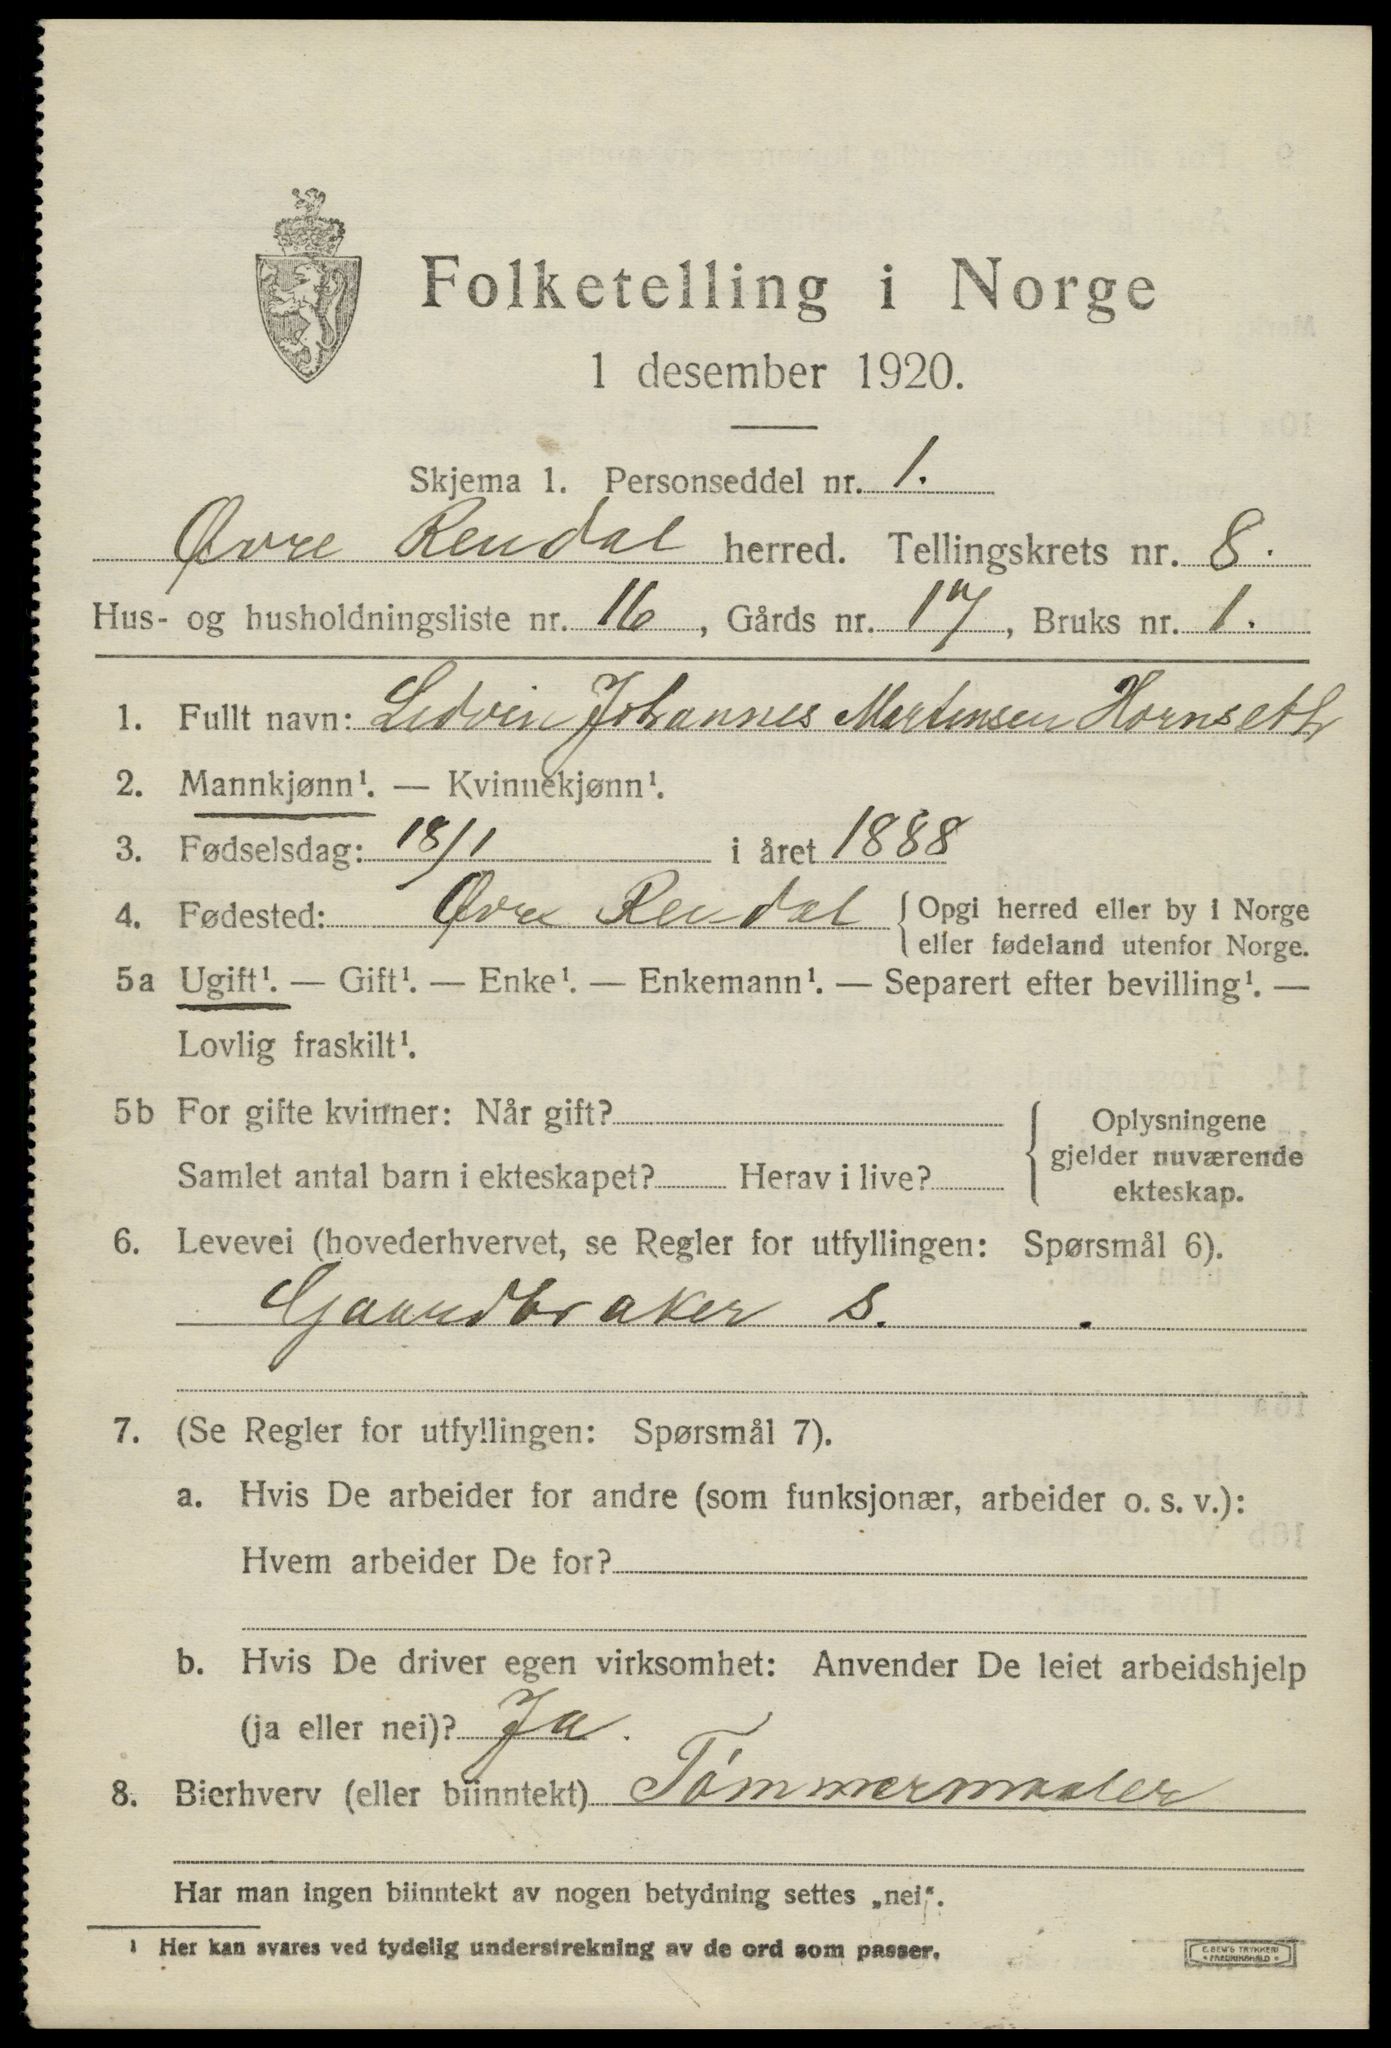 Folketelling i Norge
1 desember 1920.
Skjema 1. Personseddel nr. 1.
Øvre Rendal herred. Tellingskrets nr. 8.
Hus- og husholdningsliste nr. 16, Gårds nr. 17, Bruks nr. 1.
1. Fullt navn: Johannes Martinsen Hornseth
2. Mannkjønn¹. — Kvinnekjønn¹.
3. Fødselsdag: 18/1 i året 1888
4. Fødested: Øvre Rendal { Opgi herred eller by i Norge
eller fødeland utenfor Norge.
5a Ugift¹. — Gift¹. — Enke¹. — Enkemann¹. — Separert efter bevilling¹. —
Lovlig fraskilt¹.
5b For gifte kvinner: Når gift?
Samlet antal barn i ekteskapet? Herav i live?
{ Oplysningene
gjelder nuværende
ekteskap.
6. Levevei (hovederhvervet, se Regler for utfyllingen: Spørsmål 6).
Gaardbraker s.
7. (Se Regler for utfyllingen: Spørsmål 7).
a. Hvis De arbeider for andre (som funksjonær, arbeider o. s. v.):
Hvem arbeider De for?
b. Hvis De driver egen virksomhet: Anvender De leiet arbeidshjelp
(ja eller nei)? Ja.
8. Bierhverv (eller biinntekt) Tømmermaaler
Har man ingen biinntekt av nogen betydning settes „nei“.
¹ Her kan svares ved tydelig understrekning av de ord som passer.
E. SEM'S TRYKKERI
• FREDRIKSHALD •